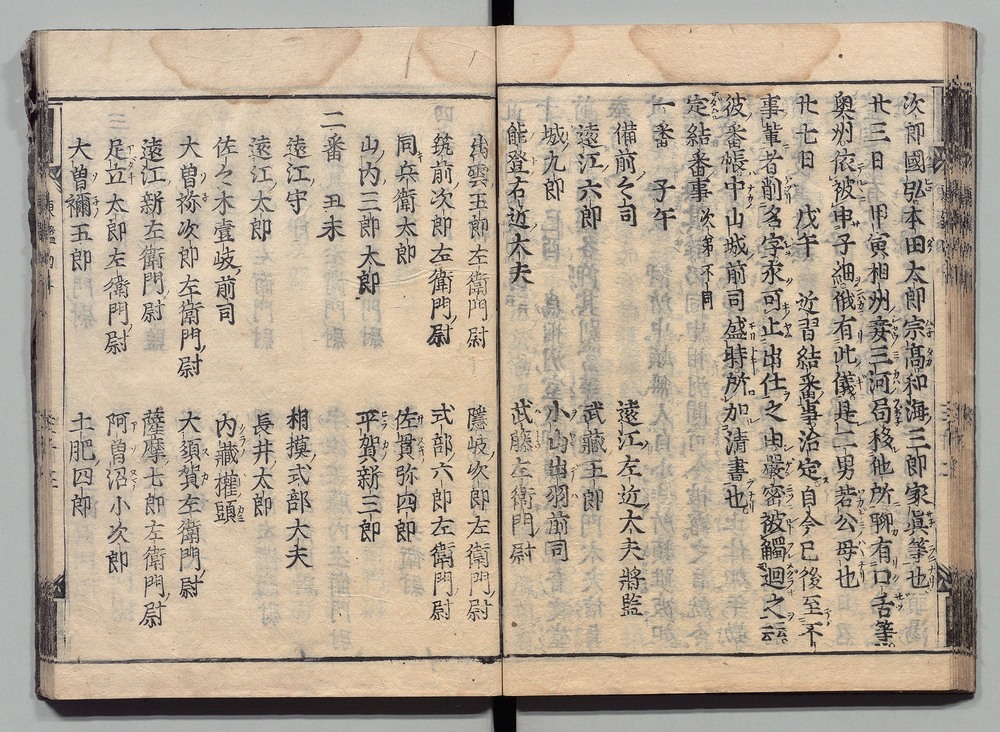 次郎國弘本田太郎宗髙和海三郎家眞等也
廿三日 甲寅相州妾三河局移他所聊有口舌等
奥州依被申子細俄有此儀是二男若公母也
廿七日 戊午 近習結番事治定自今已後至不
事輩者削名字永可止出仕之由嚴密被觸廻之云云
彼番帳中山城前司盛時所加清書也
定結番事 次第不同
一番 子午
備前々司 遠江左近大夫將監
遠江六郎 武藏王郎
城九郎 小山出羽前司
能登右近大夫 武藤左衛門尉
出雲五郎左衛門尉 隱岐次郎左衛門尉
筑前次郎左衛門尉 式部六郎左衛門尉
同兵衛太郎 佐貫弥四郎
山内三郎太郎 平賀新三郎
二番 丑未
遠江守 相摸式部大夫
遠江太郎 長井太郎
佐々木壹岐前司 内藏權頭
大曽祢次郎左衛門尉 大須賀左衛門尉
遠江新左衛門尉 薩摩七郎左衛門尉
足立太郎左衛門尉 阿曽沼小次郎
大曽禰五郎 土肥四郎